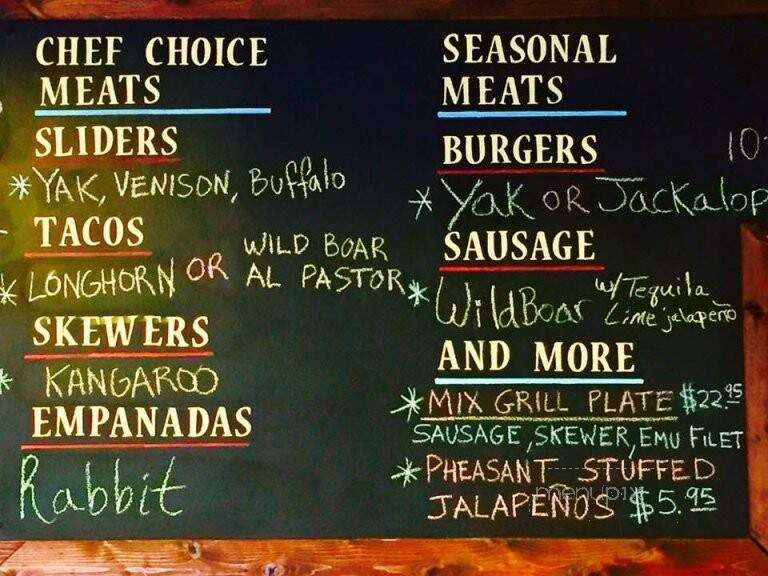 CHEF CHOICE
MEATS
SLIDERS
* YAK, VENISON, Buffalo
TACOS
* LONGHORN OR WILD BOAR
AL PASTOR
SKEWERS
* KANGAROO
EMPANADAS
Rabbit
SEASONAL
MEATS
BURGERS 10
* Yak OR Jackalop
SAUSAGE
* Wild Boar w/ Tequila
Lime jalapeño
AND MORE
* MIX GRILL PLATE $22.95
SAUSAGE, SKEWER, EMU FILET
* PHEASANT STUFFED
JALAPEÑOS $5.95
menupix